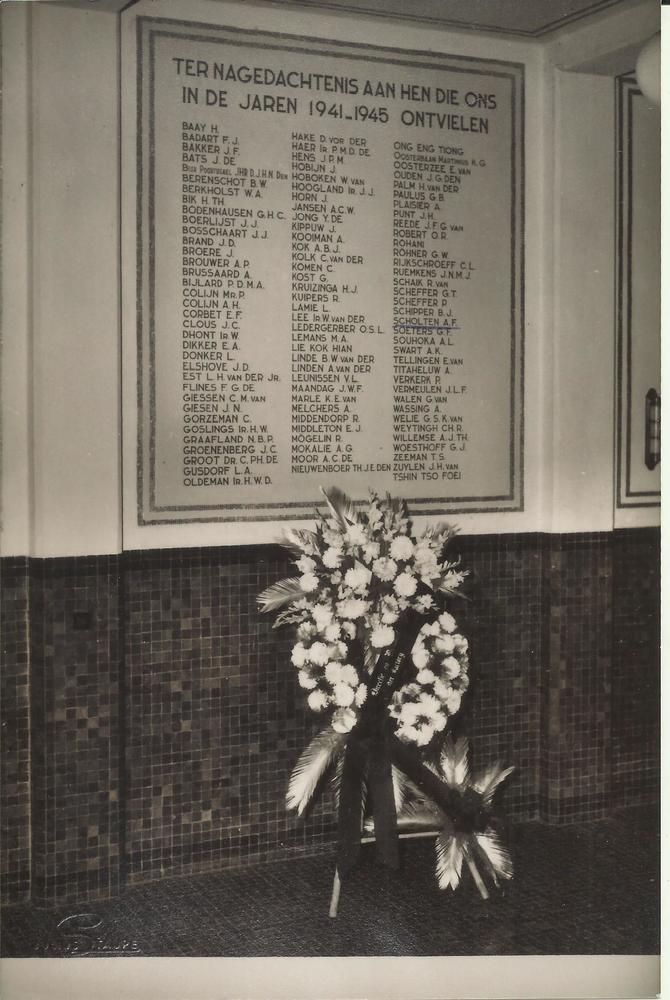 TER NAGEDACHTENIS AAN HEN DIE ONS
IN DE JAREN 1941-1945 ONTVIELEN
BAAY H.
BADART F. J.
BAKKER J. F.
BATS J. DE
BEER POORTUGAEL JHR D.J.H.N. DEN
BERENSCHOT B.W.
BERKHOLST W.A.
BIK H. TH.
BODENHAUSEN G.H.C.
BOERLIJST J.J.
BOSSCHAART J.J.
BRAND J.D.
BROERE J.
BROUWER A.P.
BRUSSAARD A.
BIJLARD P.D.M.A.
COLIJN MR. P.
COLIJN A.H.
CORBET E.F.
CLOUS J.C.
DHONT IR. W.
DIKKER E.A.
DONKER L.
ELSHOVE J.D.
EST L.H. VAN DER JR.
FLINES F.G. DE
GIESSEN C.M. VAN
GIESEN J.N.
GORZEMAN C.
GOSLINGS IR. H.W.
GRAAFLAND N.B.P.
GROENENBERG J.C.
GROOT DR. C.PH. DE
GUSDORF L.A.
OLDEMAN IR. H.W.D.
HAKE D. VOR DER
HAER IR. P.M.D. DE
HENS J.P.M.
HOBIJN J.
HOBOKEN W. VAN
HOOGLAND IR. J.J.
HORN J.
JANSEN A.C.W.
JONG Y. DE
KIPPUW J.
KOOIMAN A.
KOK A.B.J.
KOLK C. VAN DER
KOMEN C.
KOST G.
KRUIZINGA H.J.
KUIPERS R.
LAMIE L.
LEE IR. W. VAN DER
LEDERGERBER O.S.L.
LEMANS M.A.
LIE KOK HIAN
LINDE B.W. VAN DER
LINDEN A. VAN DER
LEUNISSEN V.L.
MAANDAG J.W.F.
MARLE K.E. VAN
MELCHERS A.
MIDDENDORP R.
MIDDLETON E.J.
MÖGELIN R.
MOKALIE A.G.
MOOR A.C. DE
NIEUWENBOER TH.J.E. DEN
ONG ENG TIONG
OOSTERBAAN MARTINIUS K.G.
OOSTERZEE E. VAN
OUDEN J.G. DEN
PALM H. VAN DER
PAULUS G.B.
PLAISIER A.
PUNT J.H.
REEDE J.F.G. VAN
ROBERT O.R.
ROHANI
RÖHNER G.W.
RIJKSCHROEFF C.L.
RUEMKENS J.N.M.J.
SCHAIK R. VAN
SCHEFFER G.T.
SCHEFFER P.
SCHIPPER B.J.
SCHOLTEN A.F.
SOETERS G.F.
SOUHOKA A.L.
SWART A.K.
TELLINGEN E. VAN
TITAHELUW A.
VERKERK P.
VERMEULEN J.L.F.
WALEN G. VAN
WASSING A.
WELIE G.S.K. VAN
WEYTINGH CH.R.
WILLEMSE A.J.TH.
WOESTHOFF G.J.
ZEEMAN T.S.
ZUYLEN J.H. VAN
TSHIN TSO FOEI